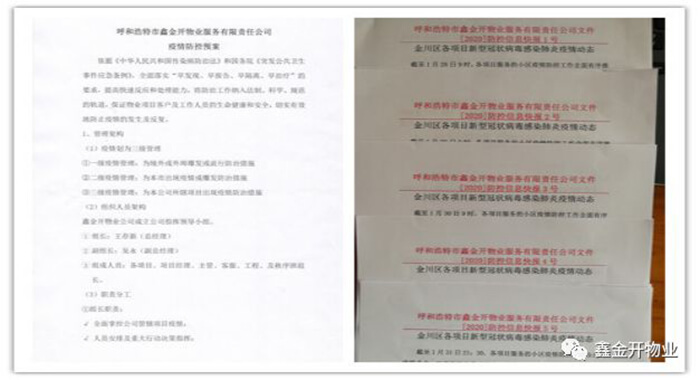 呼和浩特市鑫金开物业服务有限责任公司
疫情防控预案
依据《中华人民共和国传染病防治法》和国务院《突发公共卫生
事件应急条例》，全面落实“早发现、早报告、早隔离、早治疗”的
要求，提高快速反应和处理能力，将防控工作纳入法制、科学、规范
的轨道，保证物业项目客户及工作人员的生命健康和安全，切实有效
地防止疫情的发生及反复。
1、管理架构
（1）疫情划为三级管理
①一级疫情管理：为境外或外埠爆发或流行防治措施
②二级疫情管理：为本市出现疫情或爆发防治措施
③三级疫情管理：为本公司所辖项目出现疫情防治措施
（2）组织人员架构
鑫金开物业公司成立公司指挥领导小组。
① 组长：王存新（总经理）
② 副组长：吴永（副总经理）
③ 组成人员：各项目、项目经理、主管、客服、工程、及秩序班组
长。
（3）职责分工
①组长职责：
✓ 全面掌控公司管辖项目疫情；
✓ 人员安排及重大行动决策指挥；
呼和浩特市鑫金开物业服务有限责任公司文件
[2020]防控信息快报1号
金川区各项目新型冠状病毒感染肺炎疫情动态
截至1月28日9时，各项目服务的小区疫情防控工作全面有序推
呼和浩特市鑫金开物业服务有限责任公司文件
[2020]防控信息快报2号
金川区各项目新型冠状病毒感染肺炎疫情动态
呼和浩特市鑫金开物业服务有限责任公司文件
[2020]防控信息快报3号
金川区各项目新型冠状病毒感染肺炎疫情动态
截至1月30日9时，各项目服务的小区疫情防控工作全面有序
呼和浩特市鑫金开物业服务有限责任公司文件
[2020]防控信息快报4号
金川区各项目新型冠状病毒感染肺炎疫情动态
呼和浩特市鑫金开物业服务有限责任公司文件
[2020]防控信息快报5号
金川区各项目新型冠状病毒感染肺炎疫情动态
截至1月31日21：30，各项目服务的小区疫情防
鑫金开物业